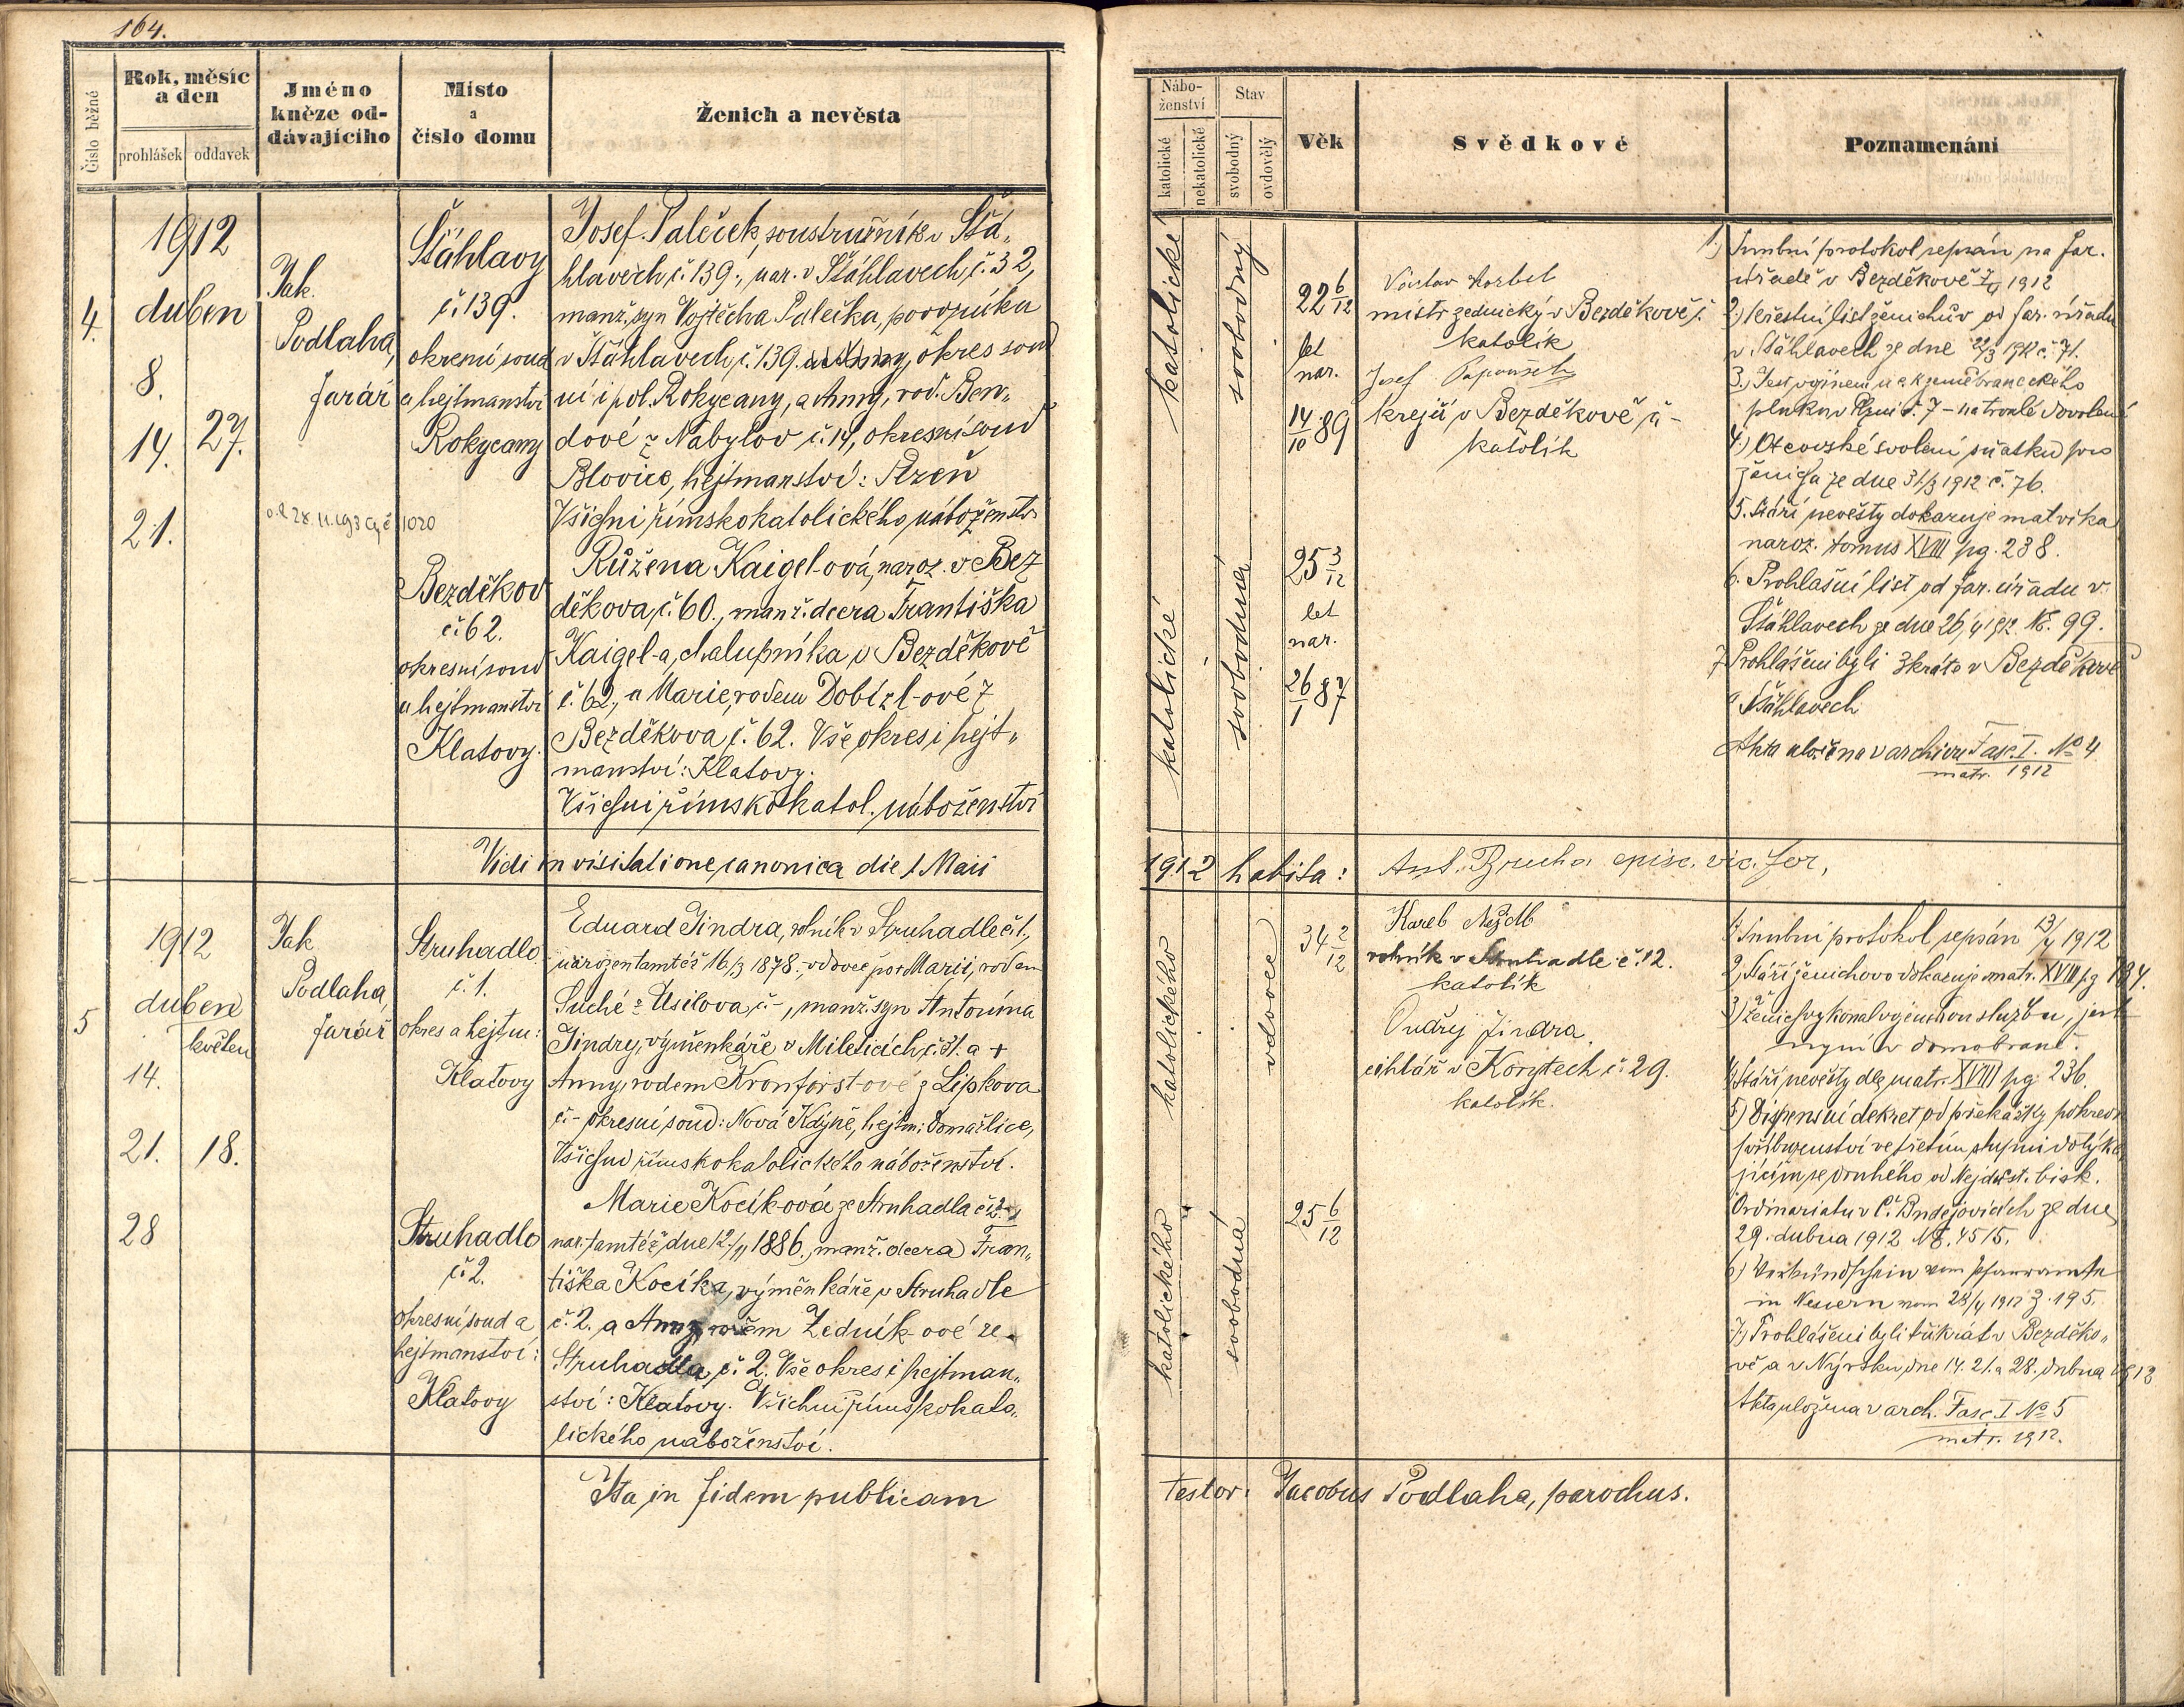 164.
Číslo běžné
Rok, měsíc a den
prohlášek
oddavek
Jméno kněze oddávajícího
Místo a číslo domu
Ženich a nevěsta
4.
1912
duben
8.
14. 27.
21.
Jak.
Podlaha,
farář
Šťáhlavy
č. 139.
okresní soud
a hejtmanství
Rokycany
Josef Paleček, soustružník v Šťá„
hlavech č. 139., nar. v Šťáhlavech, č. 32,
manž. syn Vojtěcha Palečka,
v Šťáhlavech, č. 139. okres soud
ní i pol. Rokycany, a Anny, rod. Ben„
dové z Nebylov č. 14, okresní soud
Blovice, hejtmanství: Plzeň
Všichni římskokatolického náboženstv
1020
Bezděkov
č. 62.
okresní soud
a hejtmanství
Klatovy.
Růžena Kaigel-ová, naroz. v Bez
děkova, č. 60., manž. dcera Františka
Kaigel-a, chalupníka v Bezděkově
č. 62., a Marie, rodem Dobízl-ové z
Bezděkova, č. 62. Vše okres i hejt„
manství: Klatovy.
Všichni římskokatol. náboženství
Vidi in visitatione canonica die 1 Maii
5
1912
duben
květen
14.
21. 18.
28
Jak
Podlaha,
farář
Struhadlo
č. 1.
okres a hejtm:
Klatovy
Eduard Jindra, rolník v Struhadle č. 1.,
narozen tamtéž 16./3 1878. vdovec po Marii, rodem
Suché z Úsilova, č -, manž. syn Antonína
Jindry, výměnkáře v Mileticích, č. 31. a +
Anny, rodem Kronforstové z Lipkova
č - okresní soud: Nová Kdyně, hejtm: Domažlice,
Všichni římskokatolického náboženství.
Struhadlo
č. 2.
okresní soud a
hejtmanství:
Klatovy
Marie Kocík-ová ze Struhadla č. 2.
nar. tamtéž dne 1886., manž. dcera Fran„
tiška Kocíka, výměnkáře v Struhadle
č. 2. a Anny, rodem Zedník-ové ze
Struhadla, č. 2. Vše okres i hejtman„
ství: Klatovy. Všichni římskokato„
lického náboženství.
Ita in fidem publicam
Náboženství
katolické
nekatolické
Stav
svobodný
ovdovělý
Věk
Svědkové
Poznamenání
katolické
svobodný
22 6/12
let
nar.
14/10 89
Václav
mistr zednický v Bezděkově č.
katolík
Josef
krejčí v Bezděkově č -
katolík
1.) Snubní protokol sepsán na far.
úřadě v Bezděkově 7/4 1912
2.) Křestní list ženichův od far. úřadu
v Šťáhlavech ze dne 22/3 1912 č. 71.
3.) Jest vojínem u c k zeměbraneckého
pluku v Plzni č. 7 - na trvalé dovolené
4.) Otcovské svolení sňatku pro
ženicha ze dne 31/3 1912 č. 76.
5. Stáří nevěsty dokazuje matrika
naroz. tomus XVIII pg. 238.
6. Prohlašní list od far. úřadu v
Šťáhlavech ze dne 26/4 1912 Nr. 99.
7 Prohlášeni byli 3kráte v Bezděkově
a Šťáhlavech
Akta uložena v archivu Fasc. I. No 4
matr. 1912
katolické
svobodná
25 3/12
let
nar.
26/1 87
1912 habita: Ant. episc. vic. for,
katolického
vdovec
34 2/12
Karel
rolník v Struhadle č. 12.
katolík
Ondřej Jindra,
cihlář v Korytech č. 29.
katolík.
1) Snubní protokol sepsán 13/4 1912
2) Stáří ženichovo dokazuje matr. XVII pg 184.
3) Ženich vykonal vojenskou službu, jest
nyní v domobraně.
4) Stáří nevěsty dle matr. XVIII pg. 236.
5) Dispensní dekret od překážky pokrevn
příbuzenství ve třetím stupni dotýka
jícím se druhého od Nejdůst. bisk.
Ordinariatu v Č. Budějovicích ze dne
29. dubna 1912 Nr. 4515.
6) Verkündschein vom Pfarramte
in Neuern vom 28/4 1912 Z. 195.
7) Prohlášeni byli třikrát v Bezděko„
vě a v Nýrsku dne 14. 21. a 28. dubna 1912
Akta uložena v arch. Fasc. I No 5
matr. 1912.
katolického
svobodná
25 6/12
testor. Jacobus Podlaha, parochus.